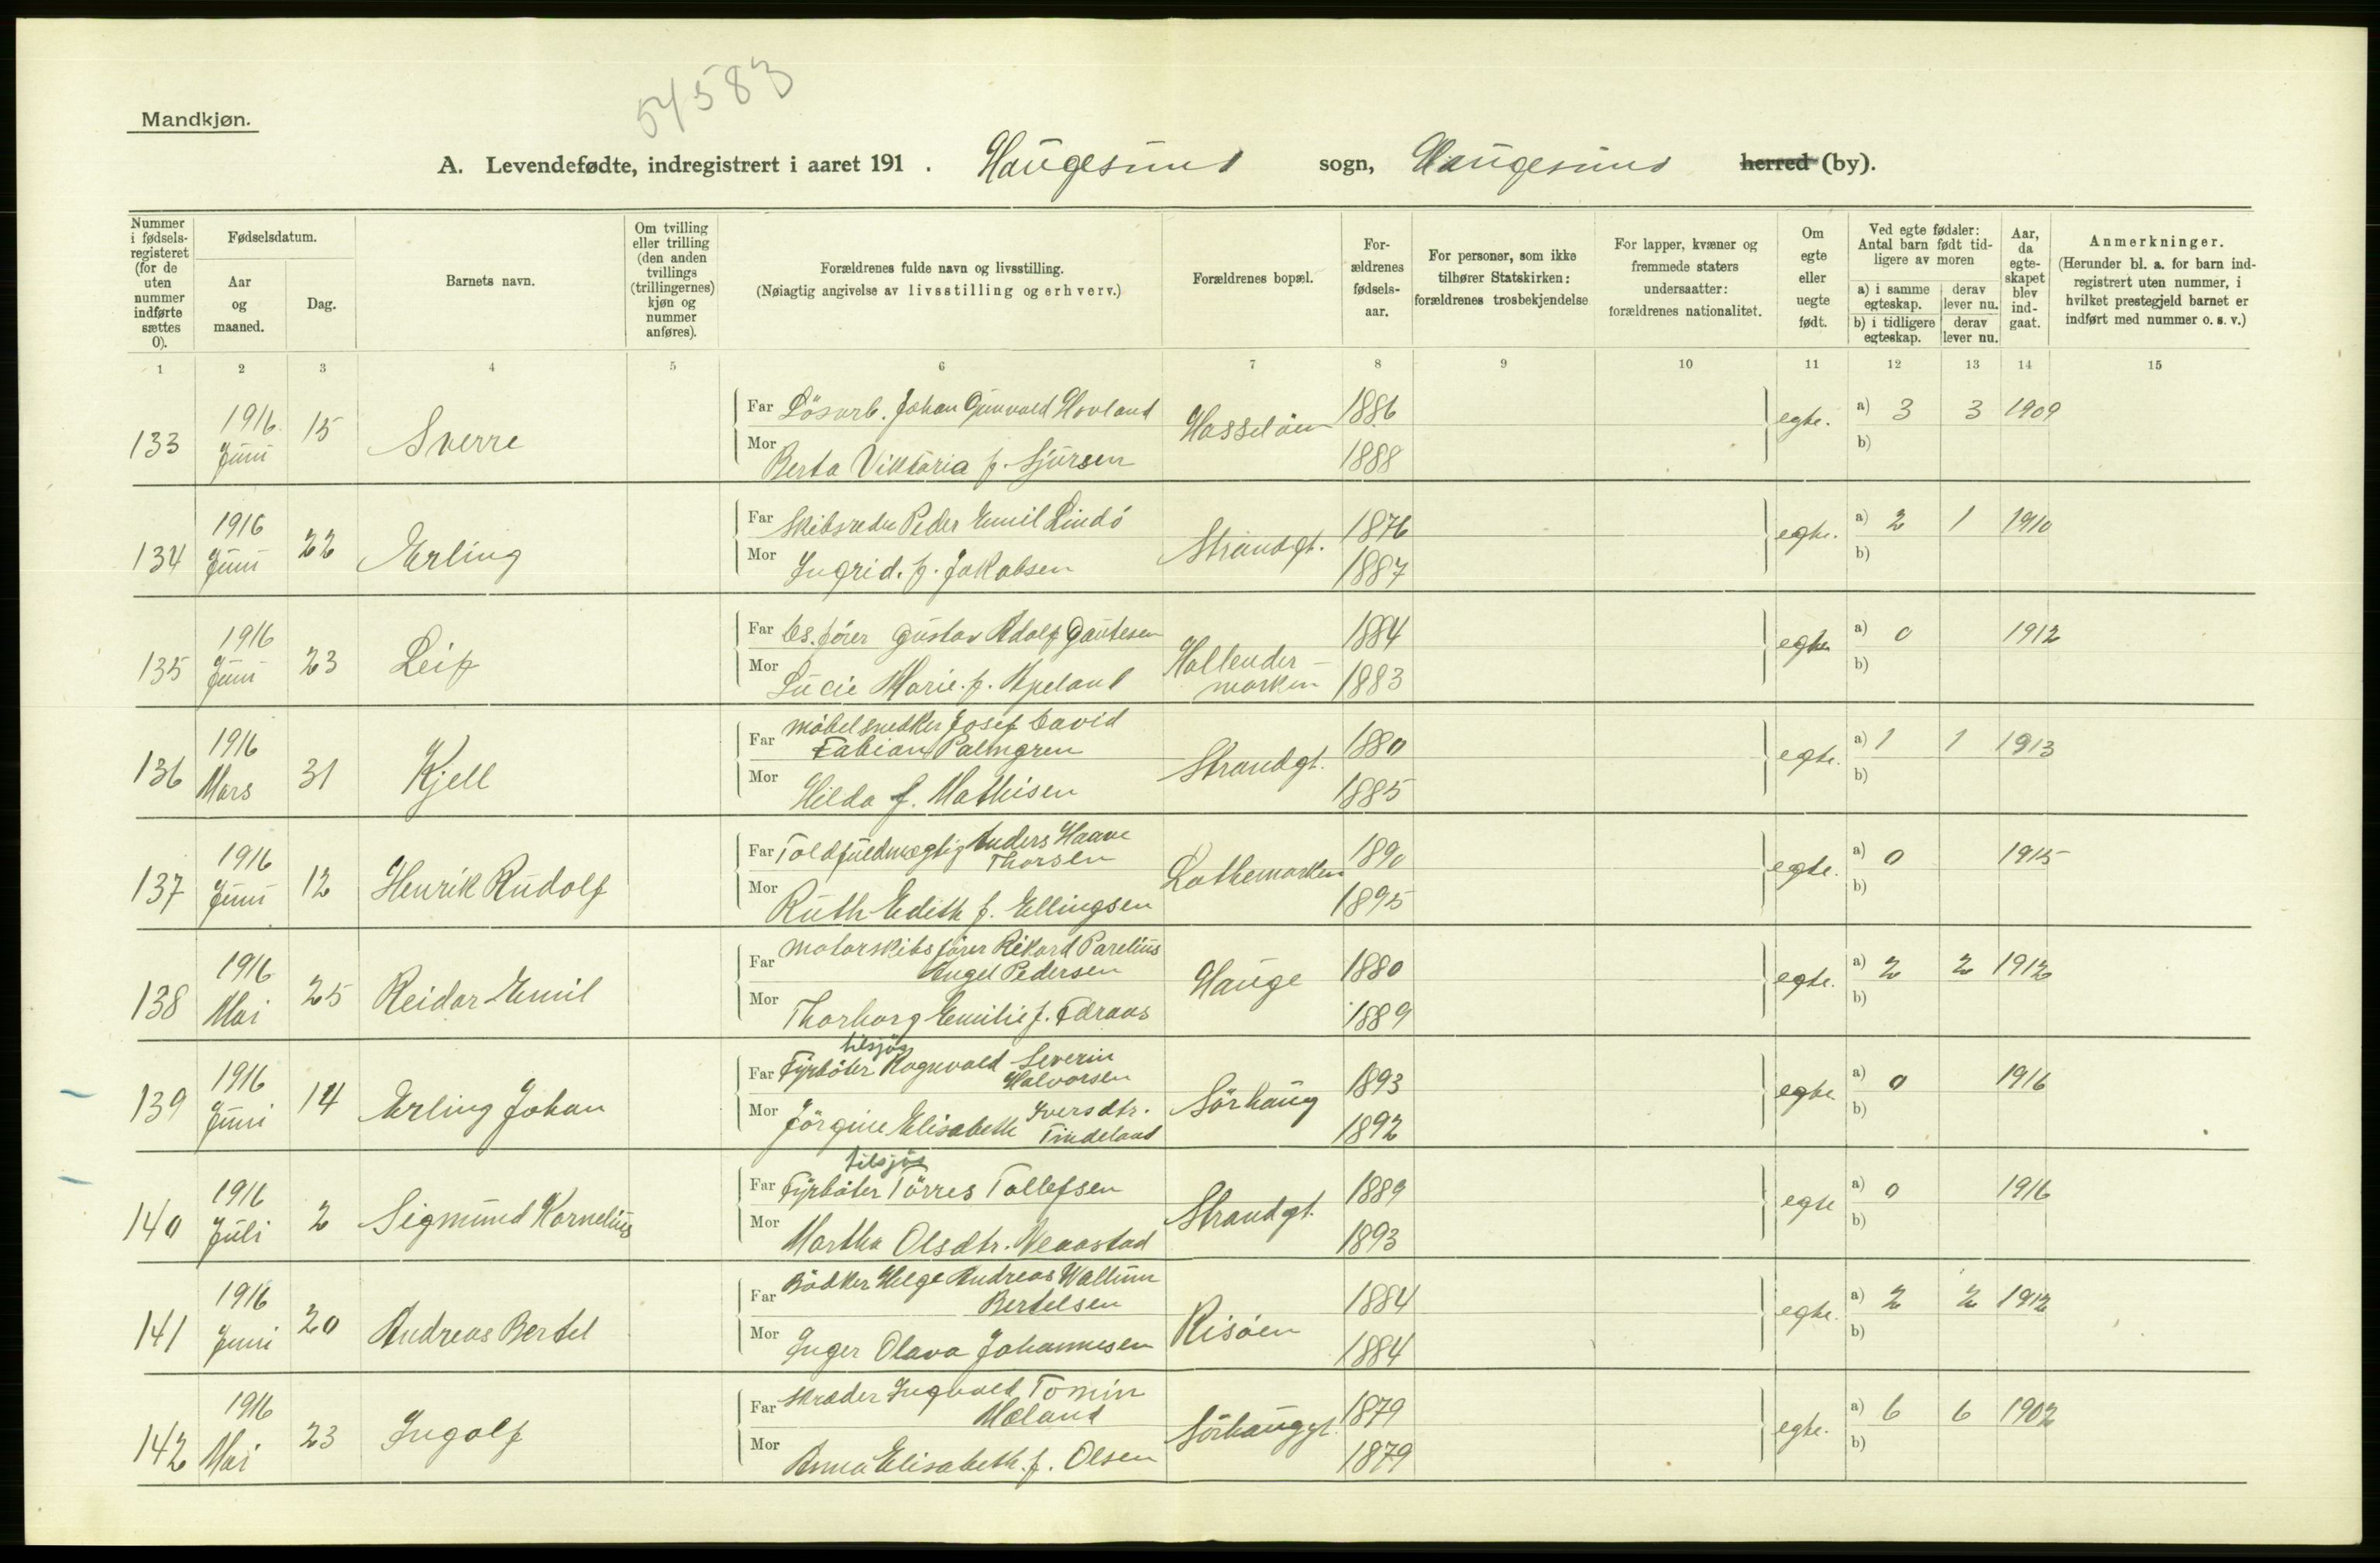 54583
Mandkjøn.
A. Levendefødte, indregistrert i aaret 191 . Haugesund sogn, Haugesund herred (by).
Nummer i fødsels-registeret (for de uten nummer indførte sættes 0).
Fødselsdatum.
Aar og maaned.
Dag.
Barnets navn.
Om tvilling eller trilling (den anden tvillings (trillingernes) kjøn og nummer anføres).
Forældrenes fulde navn og livsstilling.
(Nøiagtig angivelse av livsstilling og erhverv.)
Forældrenes bopæl.
For-ældrenes fødsels-aar.
For personer, som ikke tilhører Statskirken: forældrenes trosbekjendelse
For lapper, kvæner og fremmede staters undersaatter: forældrenes nationalitet.
Om egte eller uegte født.
Ved egte fødsler: Antal barn født tid-ligere av moren
a) i samme egteskap.
derav lever nu.
b) i tidligere egteskap.
derav lever nu.
Aar, da egte-skapet blev ind-gaat.
Anmerkninger.
(Herunder bl. a. for barn ind-registrert uten nummer, i hvilket prestegjeld barnet er indført med nummer o. s. v.)
1 2 3 4 5 6 7 8 9 10 11 12 13 14 15
133 1916 Juni 15 Sverre
Far Lösarb. Johan Gunvald Hovland Hasseløen 1886 egte. a) 3 3 1909
Mor Berta Viktoria f. Sjursen 1888 b)
134 1916 Juni 22 Erling
Far Skibsreder Peder Emil Lindö Strandgt. 1876 egte. a) 2 1 1910
Mor Ingrid. f. Jakobsen 1887 b)
135 1916 Juni 23 Leif
Far Gustav Adolf Gautesen Hallender- marken 1884 egte a) 0 1912
Mor Lucie Marie. f. Apeland 1883 b)
136 1916 Mars 31 Kjell
Far Möbelsnedker Josef David
Fabian Palmgren Strandgt. 1880 egte. a) 1 1 1913
Mor Hilda f. Mathisen 1885 b)
137 1916 Juni 12 Henrik Rudolf
Far Toldfuldmægtig Anders Haave
Thorsen Lothemarken 1890 egte. a) 0 1915
Mor Ruth Edith f. Ellingsen 1895 b)
138 1916 Mai 25 Reidar Emil
Far Motorskibsförer Rikard Parelius
Angel Pedersen Hauge 1880 egte. a) 2 2 1912
Mor Thorborg Emilie f. 1889 b)
139 1916 Juni 14 Erling Johan
tilsjös
Far Fyrböter Ragnvald Severin
Halvorsen Sörhaug 1893 egte a) 0 1916
Mor Jörgine Elisabeth Iversdtr.
Tindeland 1892 b)
140 1916 Juli 2 Sigmund Kornelius
tilsjös
Far Fyrböter Törres Tollefsen Strandgt. 1889 egte a) 0 1916
Mor Martha Olsdtr. Veaastad 1893 b)
141 1916 Juni 20 Andreas Bertel
Far Bödker Helge Andreas Wallum
Bertelsen Risöen 1884 egte. a) 2 2 1912
Mor Inger Olava Johannesen 1884 b)
142 1916 Mai 23 Ingolf
Far Skræder Ingvald Tomin
Mæland Sörhauggt. 1879 egte. a) 6 6 1902
Mor Anna Elisabeth. f. Olsen 1879 b)